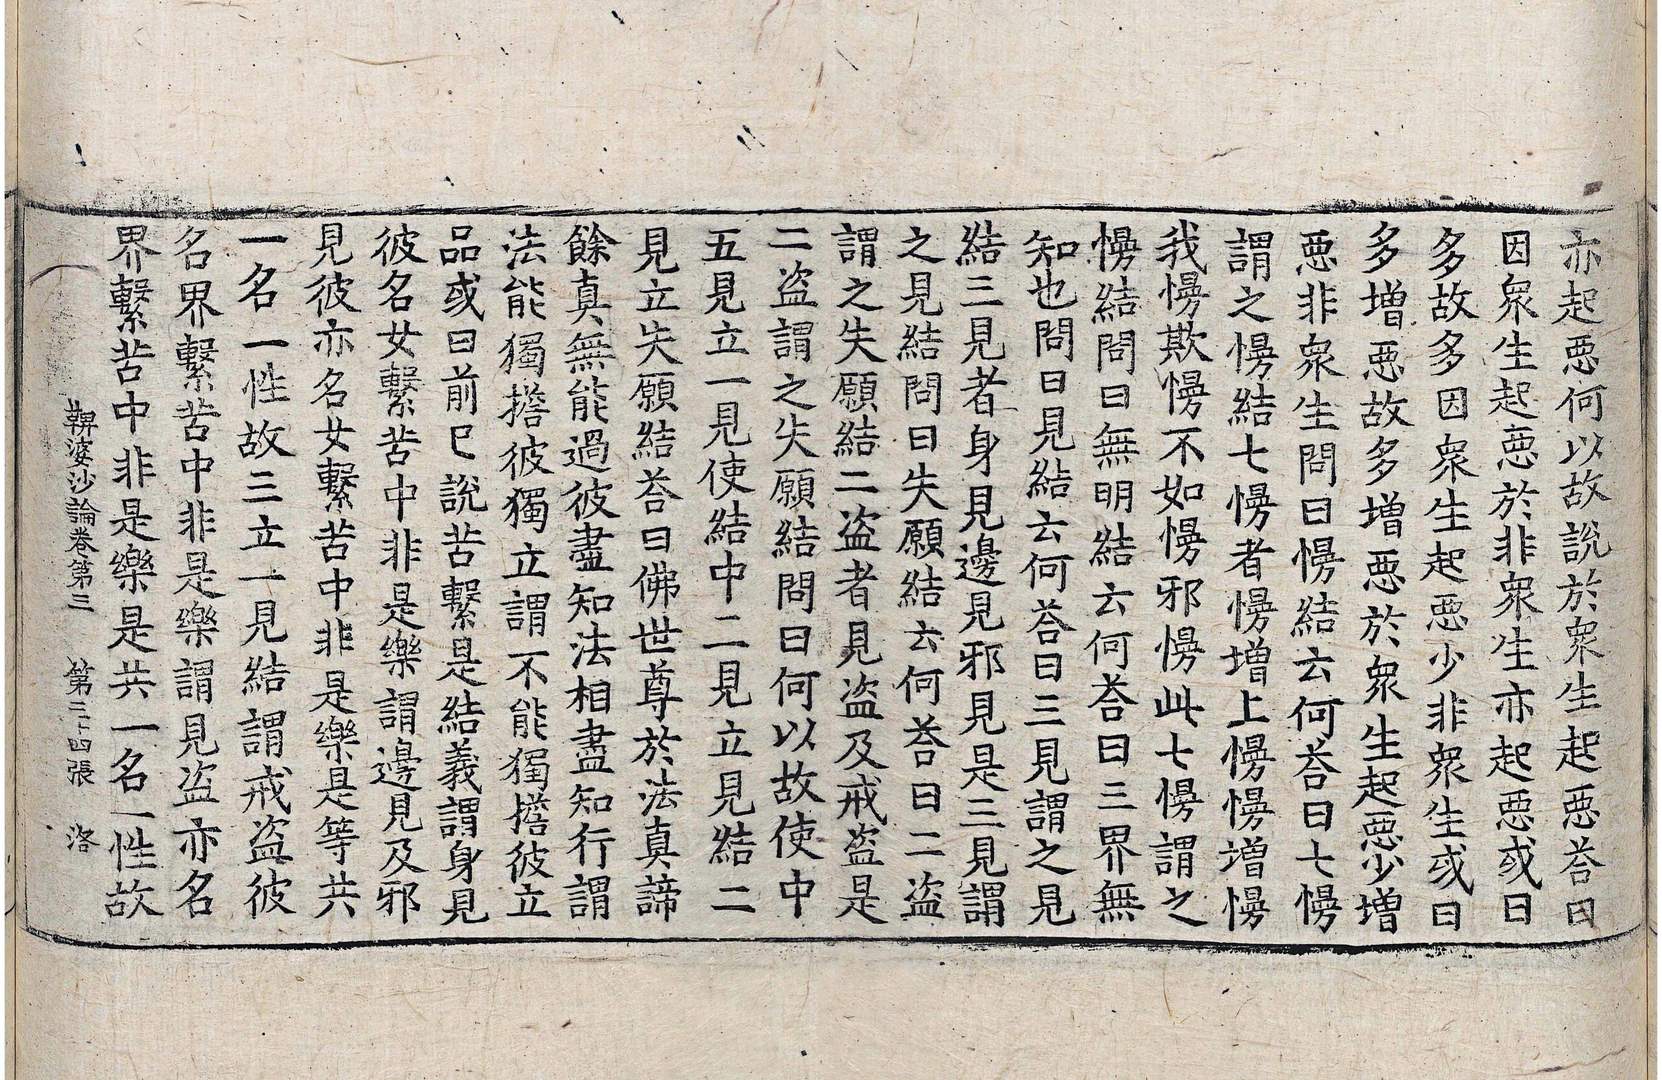 亦起惡何以故說於衆生起惡荅曰
因衆生起惡於非衆生亦起惡或曰
多故多因衆生起惡少非衆生或曰
多增惡故多增惡於衆生起惡少增
惡非衆生問曰慢結云何荅曰七慢
謂之慢結七慢者慢增上慢慢增慢
我慢欺慢不如慢邪慢此七慢謂之
慢結問曰無明結云何荅曰三界無
知也問曰見結云何荅曰三見謂之見
結三見者身見邊見邪見是三見謂
之見結問曰失願結云何荅曰二盜
謂之失願結二盜者見盜及戒盜是
二盜謂之失願結問曰何以故使中
五見立一見使結中二見立見結二
見立失願結荅曰佛世尊於法真諦
餘真無能過彼盡知法相盡知行謂
法能獨擔彼獨立謂不能獨擔彼立
品或曰前已說苦繫是結義謂身見
彼名女繫苦中非是樂謂邊見及邪
見彼亦名女繫苦中非是樂是等共
一名一性故三立一見結謂戒盜彼
名界繫苦中非是樂謂見盜亦名
界繫苦中非是樂是共一名一性故
鞞婆沙論卷第三 第三十四張 洛